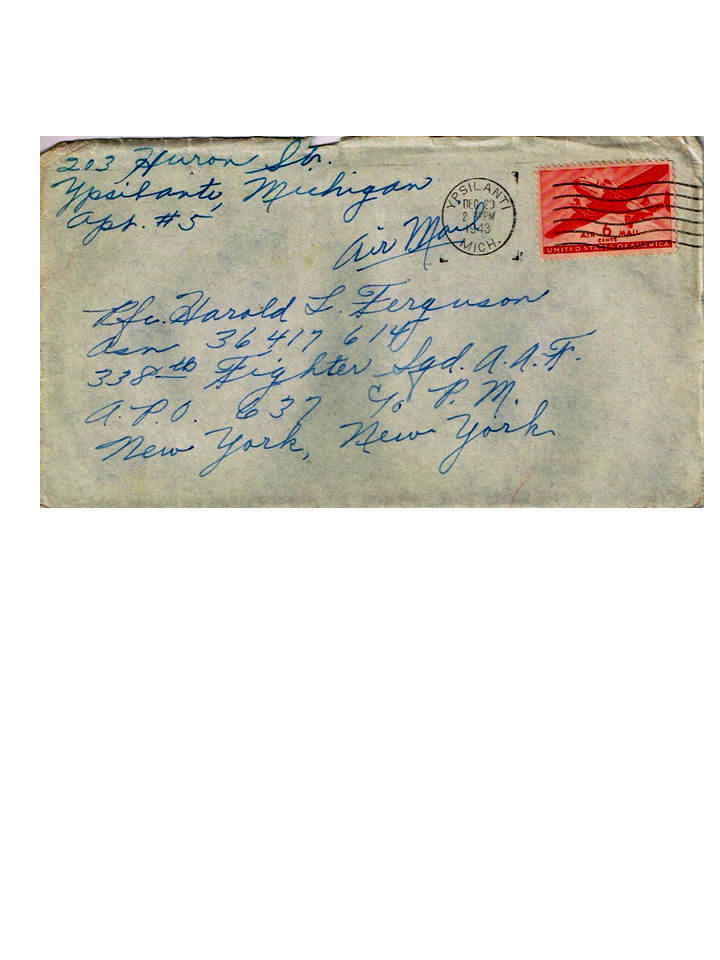 203 Huron Str.
Ypsilanti, Michigan
Apt. #5
Air Mail
YPSILANTI
DEC 20
2 PM
1943
MICH.
AIR 6 MAIL
CENTS
UNITED STATES OF AMERICA
Pfc. Harold L. Ferguson
Asn 36 417 614
338th Fighter Sqd. A.A.F.
A.P.O. 637 c/o P.M.
New York, New York